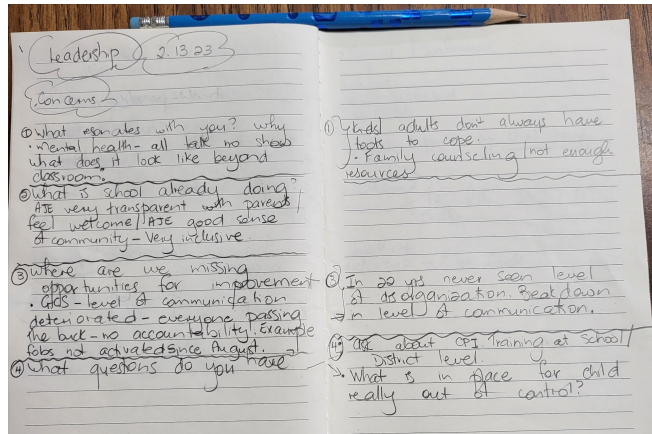 Leadership 2.13.23
Concerns
① What resonates with you? why
• mental health - all talk no show
what does it look like beyond
classroom?
② What is school already doing?
AJE very transparent with parents/
feel welcome/AJE good sense
of community - Very inclusive
③ where are we missing
opportunities for improvement
• - level of communication
deteriorated - everyone passing
the buck - no accountability! Example
fobs not activated since August.
④ What questions do you have
① kids/ adults don't always have
tools to cope.
• Family counseling/not enough
resources
③ In 20 yrs never seen level
of disorganization. Breakdown
→ in level of communication.
④ ask about CPI Training at school/
District level.
• What is in place for child
really out of control?